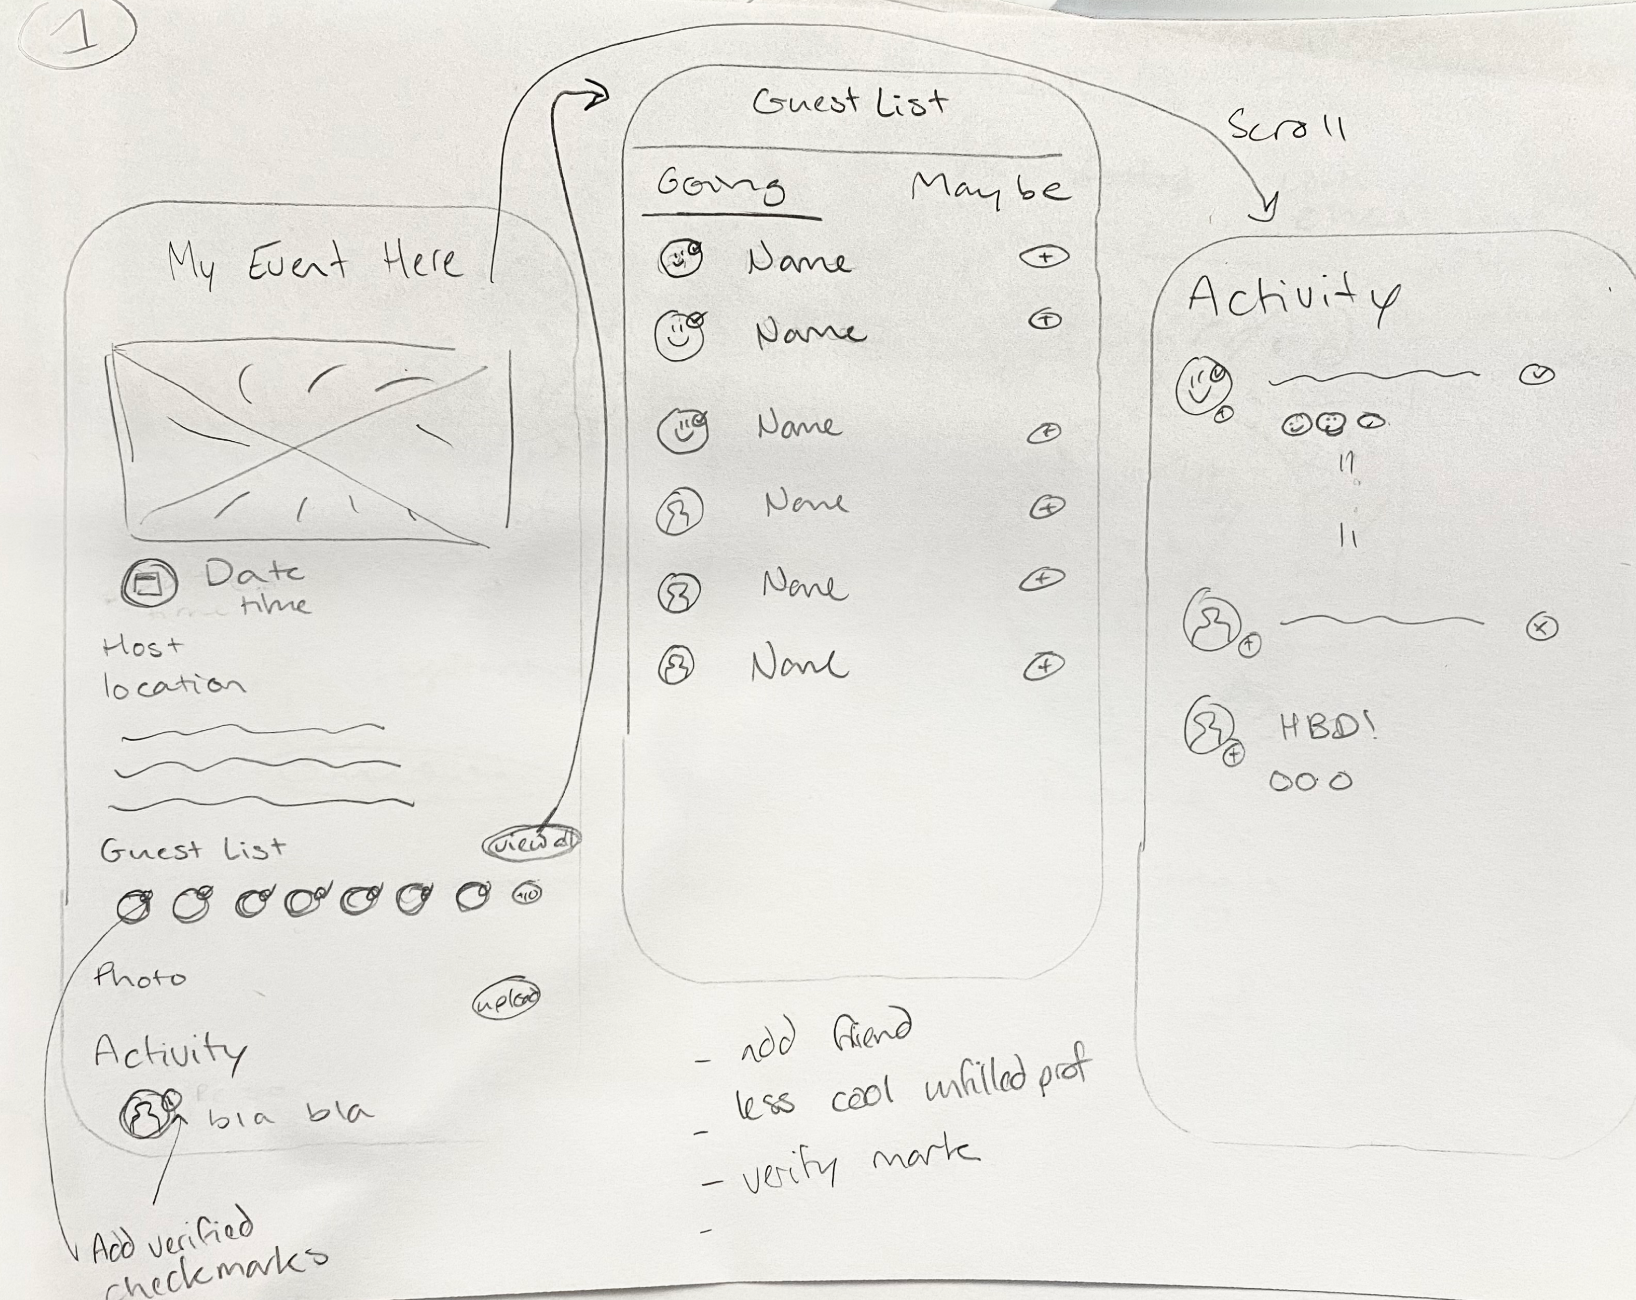 1
My Event Here
Date
time
Host
location
Guest List
view all
+10
Photo
upload
Activity
bla bla
Add verified
checkmarks
Guest List
Going Maybe
Name
Name
Name
Name
Name
Name
- add friend
less cool unfilled prof
-
- verify mark
-
Scroll
Activity
11
11
HBD!